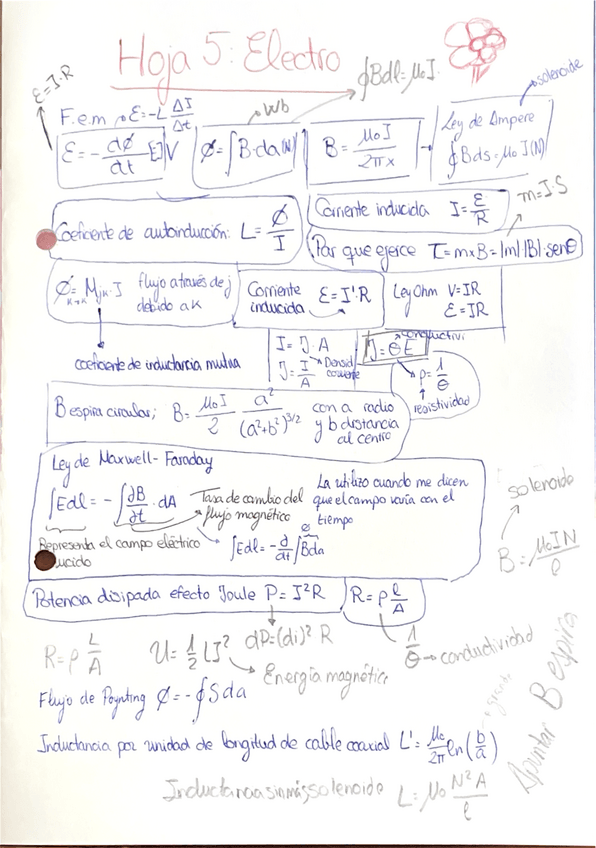 Hoja 5: Electro
∮Bdl=μ₀I
ε=I·R
F.e.m → ε=-L ΔI/Δt
Wb
solenoide
ε=-dØ/dt [=]V
Ø=∫B·da(N)
B=μ₀I/2πx
Ley de Ampere
∮Bds=μ₀I(N)
Coeficiente de autoinducción: L=Ø/I
Corriente inducida I=ε/R
m=I·S
Par que ejerce τ=m×B=|m||B|·senθ
Ø=Mⱼₖ·I flujo a través de j
debido a K
Corriente
inducida ε=I'·R
Ley Ohm V=IR
ε=IR
coeficiente de inductancia mutua
I=J·A
J=I/A → Densid
corriente
J=ΘE
conductivi
ρ=1/Θ
resistividad
B espira circular; B=μ₀I/2 a²/(a²+b²)^3/2 con a radio
y b distancia
al centro
Ley de Maxwell-Faraday
∫Edl=-∫∂B/∂t·dA
Tasa de cambio del
flujo magnético
La utilizo cuando me dicen
que el campo varía con el
tiempo
Representa el campo eléctrico
ucido
∫Edl=-∂/∂t∫Bda
solenoide
B=μ₀IN/l
Potencia disipada efecto Joule P=I²R
R=ρ l/A
R=ρ L/A
U=1/2 LI²
dP=(di)²R
1/Θ → conductividad
Energía magnética
Flujo de Poynting Ø=-∮Sda
Inductancia por unidad de longitud de cable coaxial L'=μ₀/2π ln(b/a)
Apuntar B espira
Inductancia sin más solenoide L=μ₀ N²A/l